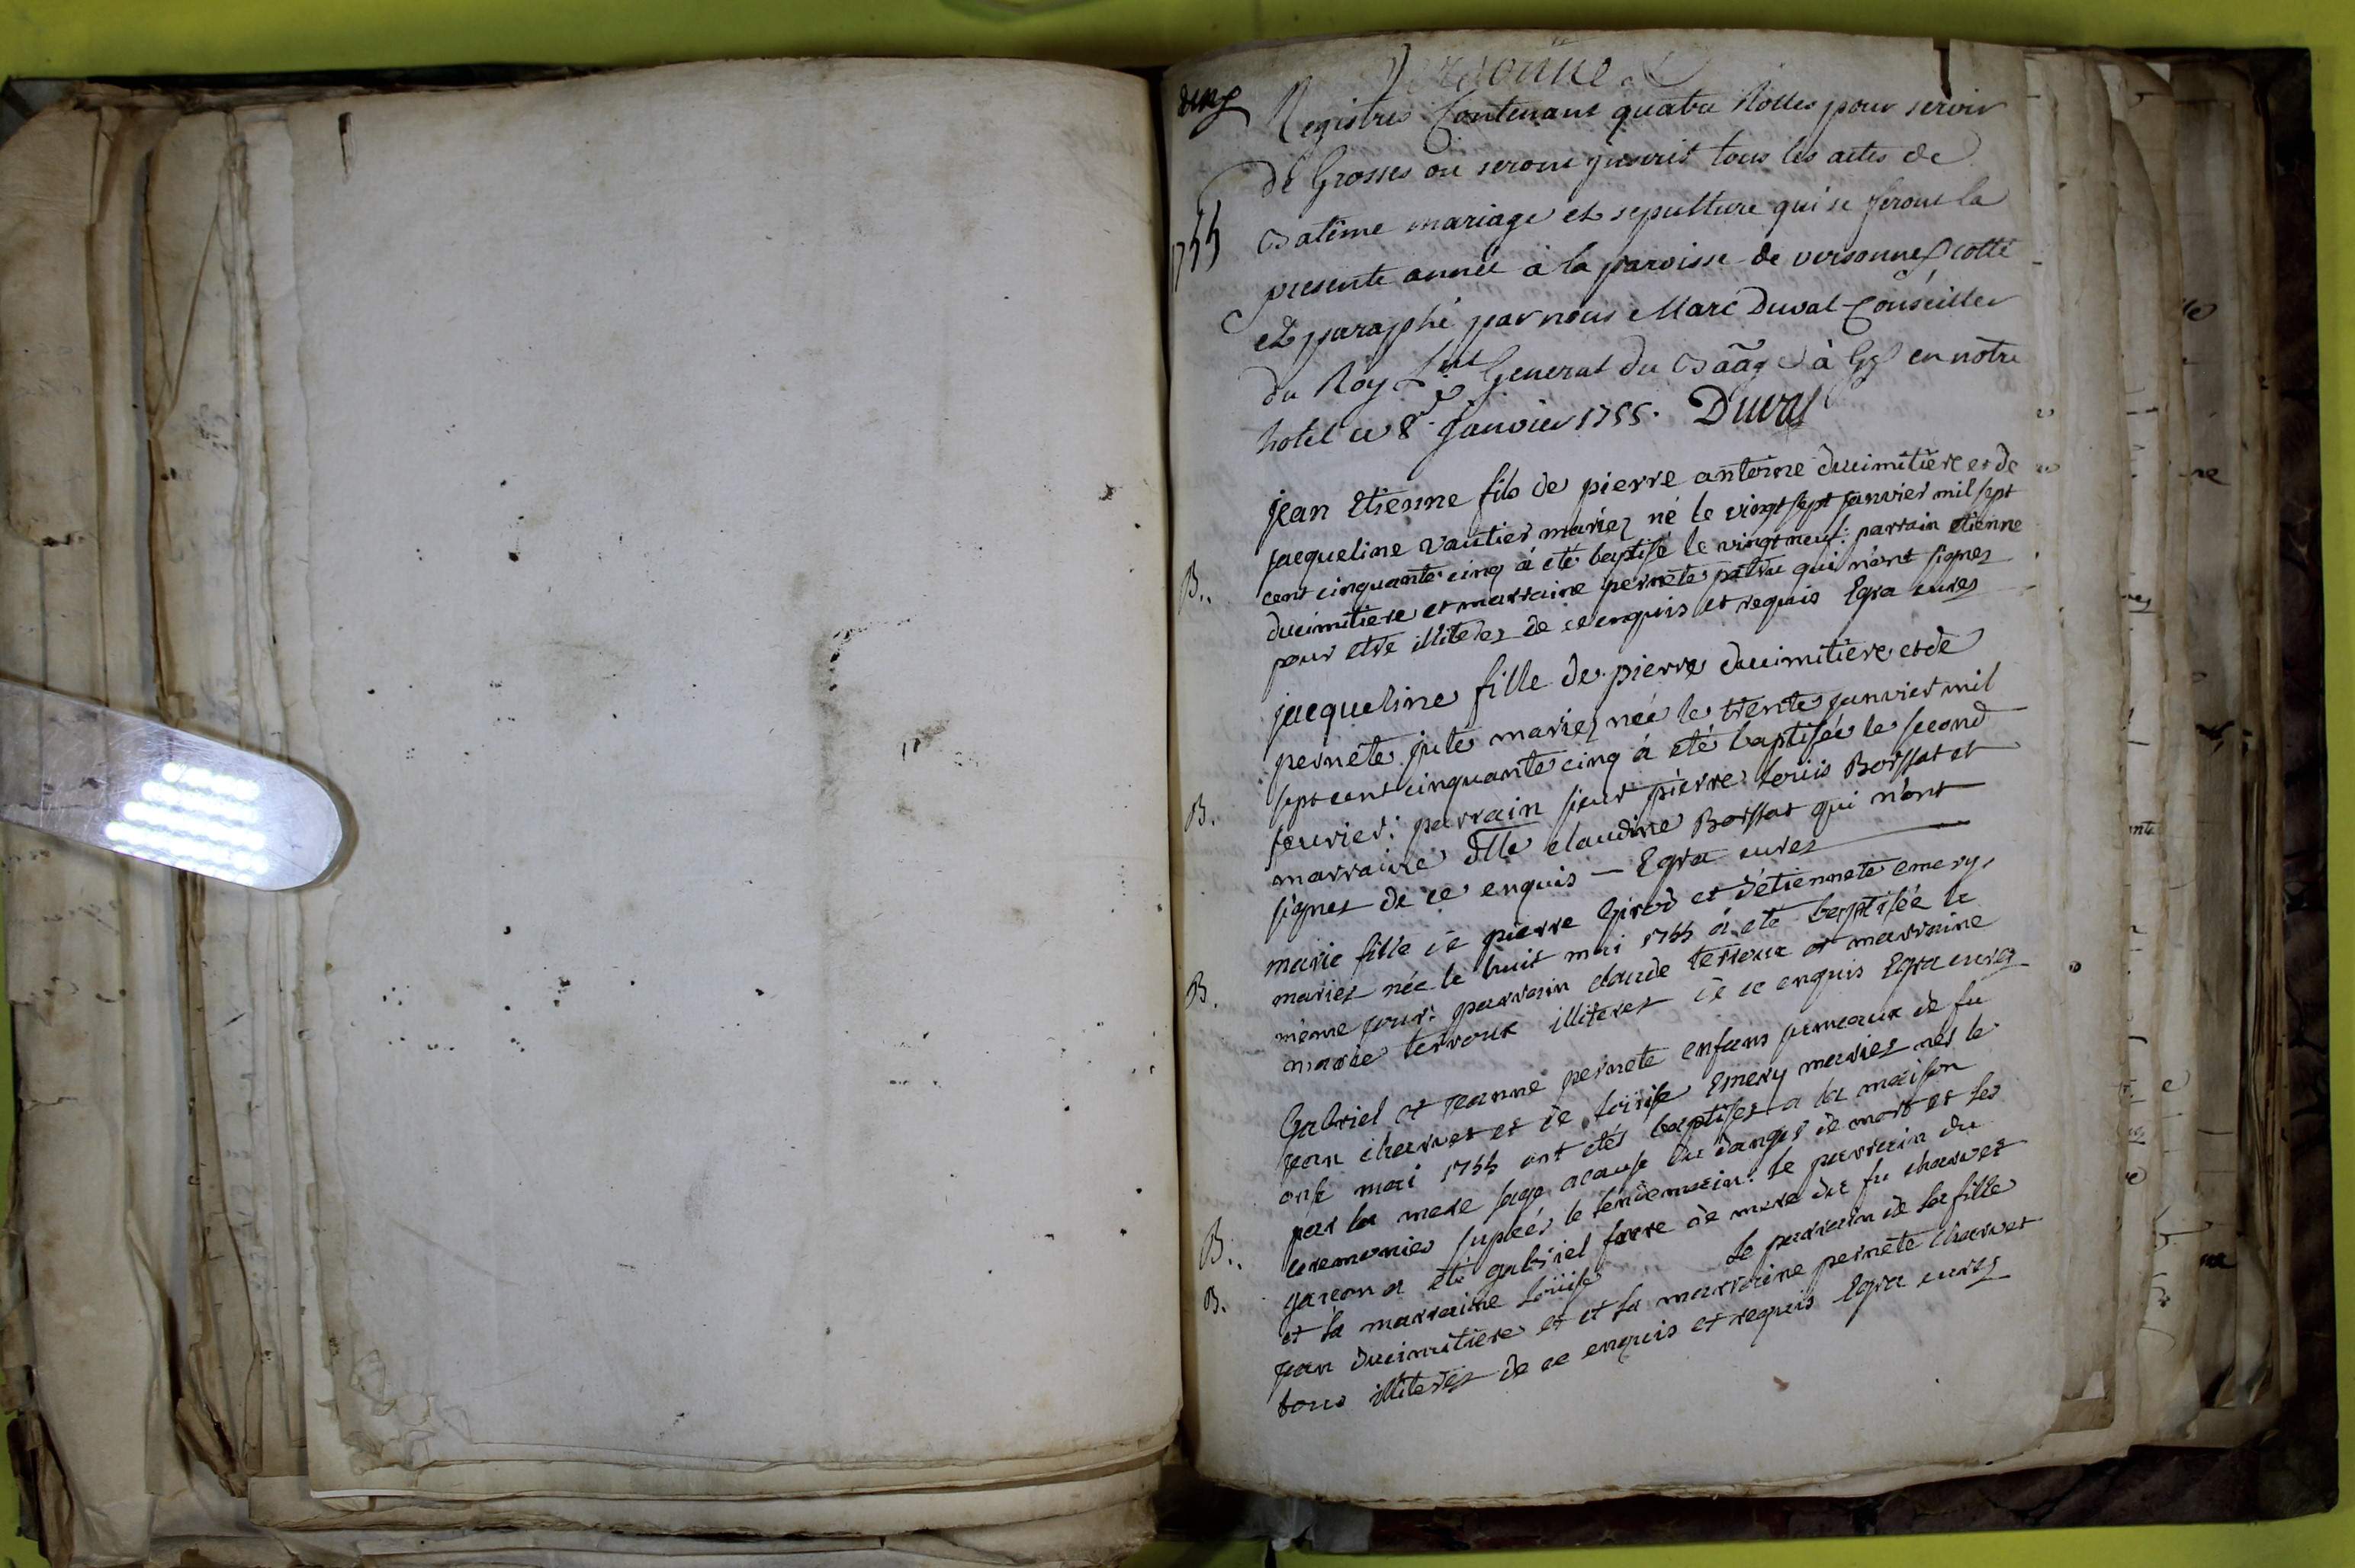 Registres Contenant quatre Rolles pour servir
de Grosses ou seront jnscrit tous les actes de
1755
Batême mariage et sepulture qui se feront la
presente année à la paroisse de versonnex cotté
et paraphé par nous Marc Duval Conseiller
du Roy L.nt General du Baãge à Gex en notre
hotel ce 8.e Janvier 1755. Duval
jean Etienne fils de pierre antoine ducimitière et de
jacqueline vautier mariez né le vingt sept janvier mil sept
B..
cent cinquante cinq à été baptisé le vingt neuf: parrain etienne
ducimitiere et marraine pernete patru qui n'ont signez
pour etre illiterez de ce enquis et requis Egra curez
jacqueline fille de pierre ducimitière et de
pernete jute mariez née le trente janvier mil
sept cent cinquante cinq à été baptisée le second
B.
feurier: parrain sieur pierre louis Borssat et
marraine dlle claudine Borssat qui n'ont
signez de ce enquis — Egra curez
marie fille de pierre Girod et d'étiennete emery,
mariez née le huit mai 1755 à été baptisée le
B.
même jour: parrain claude terroux et marraine
marie terroux illiterez de ce enquis Egra curez
Gabriel et Jeanne pernete enfans jumeaux de fu
jean charvet et de loüise Emery mariez nes le
onse mai 1755 ont étés baptisez a la maison
par la mere sage acause du danger de mort et les
B..
ceremonies supleés le lendemain: le parrain du
garcon a été gabriel frere de mere du fu charvet
B.
et la marraine loüise le parrain de la fille
jean ducimitière et et la marraine pernete charvet
tous illiterez de ce enquis et requis Egra curez